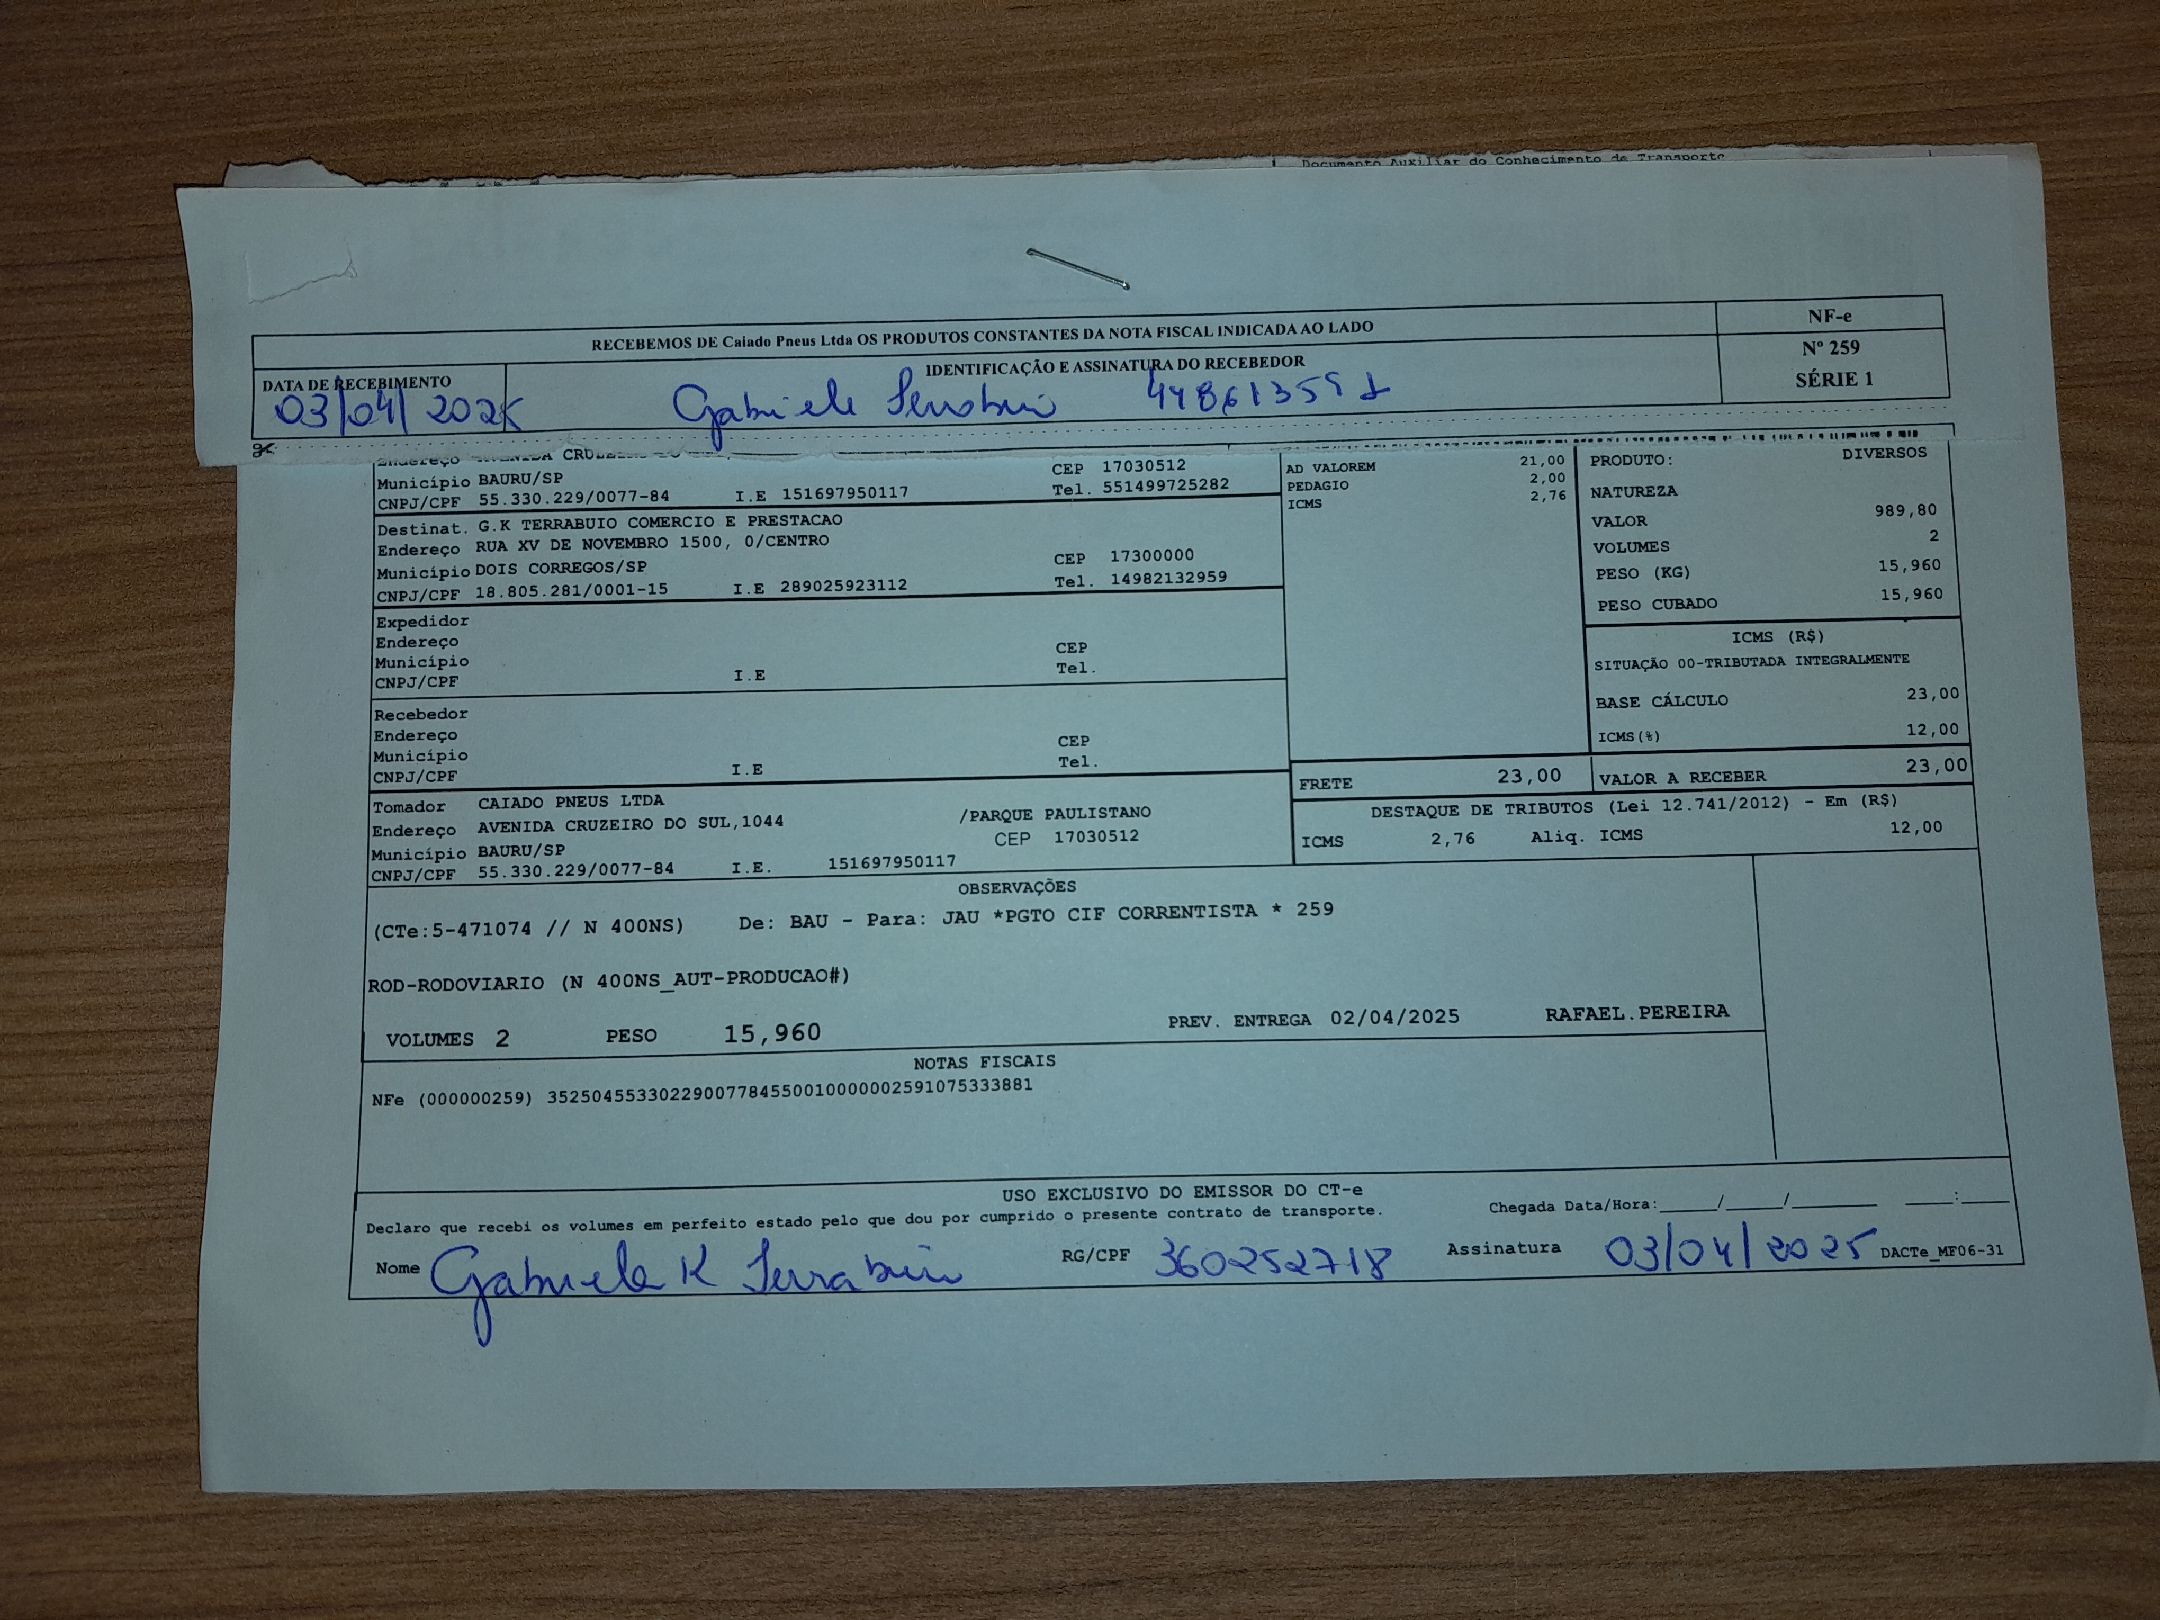 Documento Auxiliar do Conhecimento de Transporte
RECEBEMOS DE Caiado Pneus Ltda OS PRODUTOS CONSTANTES DA NOTA FISCAL INDICADA AO LADO
NF-e
Nº 259
SÉRIE 1
DATA DE RECEBIMENTO
IDENTIFICAÇÃO E ASSINATURA DO RECEBEDOR
03/04/2025 Gabriele
Endereço AVENIDA
Município BAURU/SP CEP 17030512
CNPJ/CPF 55.330.229/0077-84 I.E 151697950117 Tel. 551499725282
AD VALOREM 21,00
PEDAGIO 2,00
ICMS 2,76
PRODUTO: DIVERSOS
NATUREZA
VALOR 989,80
VOLUMES 2
PESO (KG) 15,960
PESO CUBADO 15,960
Destinat. G.K TERRABUIO COMERCIO E PRESTACAO
Endereço RUA XV DE NOVEMBRO 1500, 0/CENTRO
Município DOIS CORREGOS/SP CEP 17300000
CNPJ/CPF 18.805.281/0001-15 I.E 289025923112 Tel. 14982132959
Expedidor
Endereço
Município CEP
CNPJ/CPF I.E Tel.
ICMS (R$)
SITUAÇÃO 00-TRIBUTADA INTEGRALMENTE
BASE CÁLCULO 23,00
ICMS(%) 12,00
Recebedor
Endereço
Município CEP
CNPJ/CPF I.E Tel.
FRETE 23,00 VALOR A RECEBER 23,00
Tomador CAIADO PNEUS LTDA
Endereço AVENIDA CRUZEIRO DO SUL,1044 /PARQUE PAULISTANO
Município BAURU/SP CEP 17030512
CNPJ/CPF 55.330.229/0077-84 I.E. 151697950117
DESTAQUE DE TRIBUTOS (Lei 12.741/2012) - Em (R$)
ICMS 2,76 Aliq. ICMS 12,00
OBSERVAÇÕES
(CTe:5-471074 // N 400NS) De: BAU - Para: JAU *PGTO CIF CORRENTISTA * 259
ROD-RODOVIARIO (N 400NS_AUT-PRODUCAO#)
VOLUMES 2 PESO 15,960 PREV. ENTREGA 02/04/2025 RAFAEL.PEREIRA
NOTAS FISCAIS
NFe (000000259) 35250455330229007784550010000002591075333881
USO EXCLUSIVO DO EMISSOR DO CT-e
Declaro que recebi os volumes em perfeito estado pelo que dou por cumprido o presente contrato de transporte. Chegada Data/Hora:____/____/______ ___:___
Nome Gabriele K Terrabuio RG/CPF 360252718 Assinatura 03/04/2025 DACTe_MF06-31